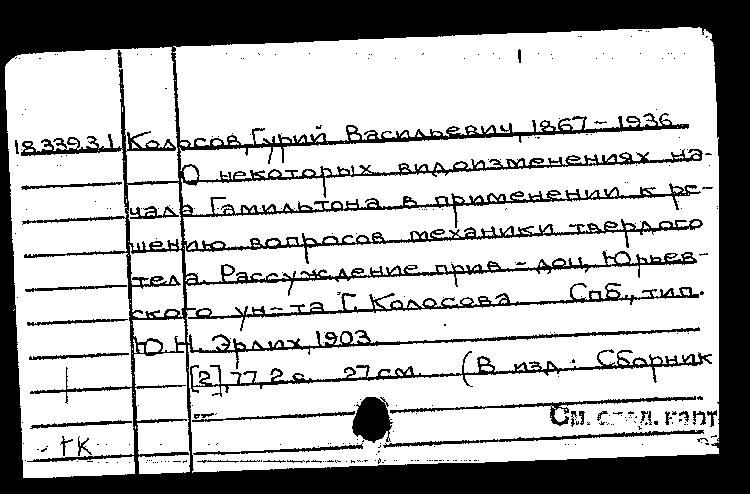 18.339.3.1 Колосов, Гурий Васильевич, 1867 – 1936
О некоторых видоизменениях на-
чала Гамильтона в применении к ре-
шению вопросов механики твердого
тела. Рассуждение прив-доц. Юрьев-
ского ун-та Г. Колосова. Спб., тип.
Ю. Н. Эрлих, 1903.
[2], 77, 2 с. 27 см. (В изд.: Сборник
См. след. карт
- ГК